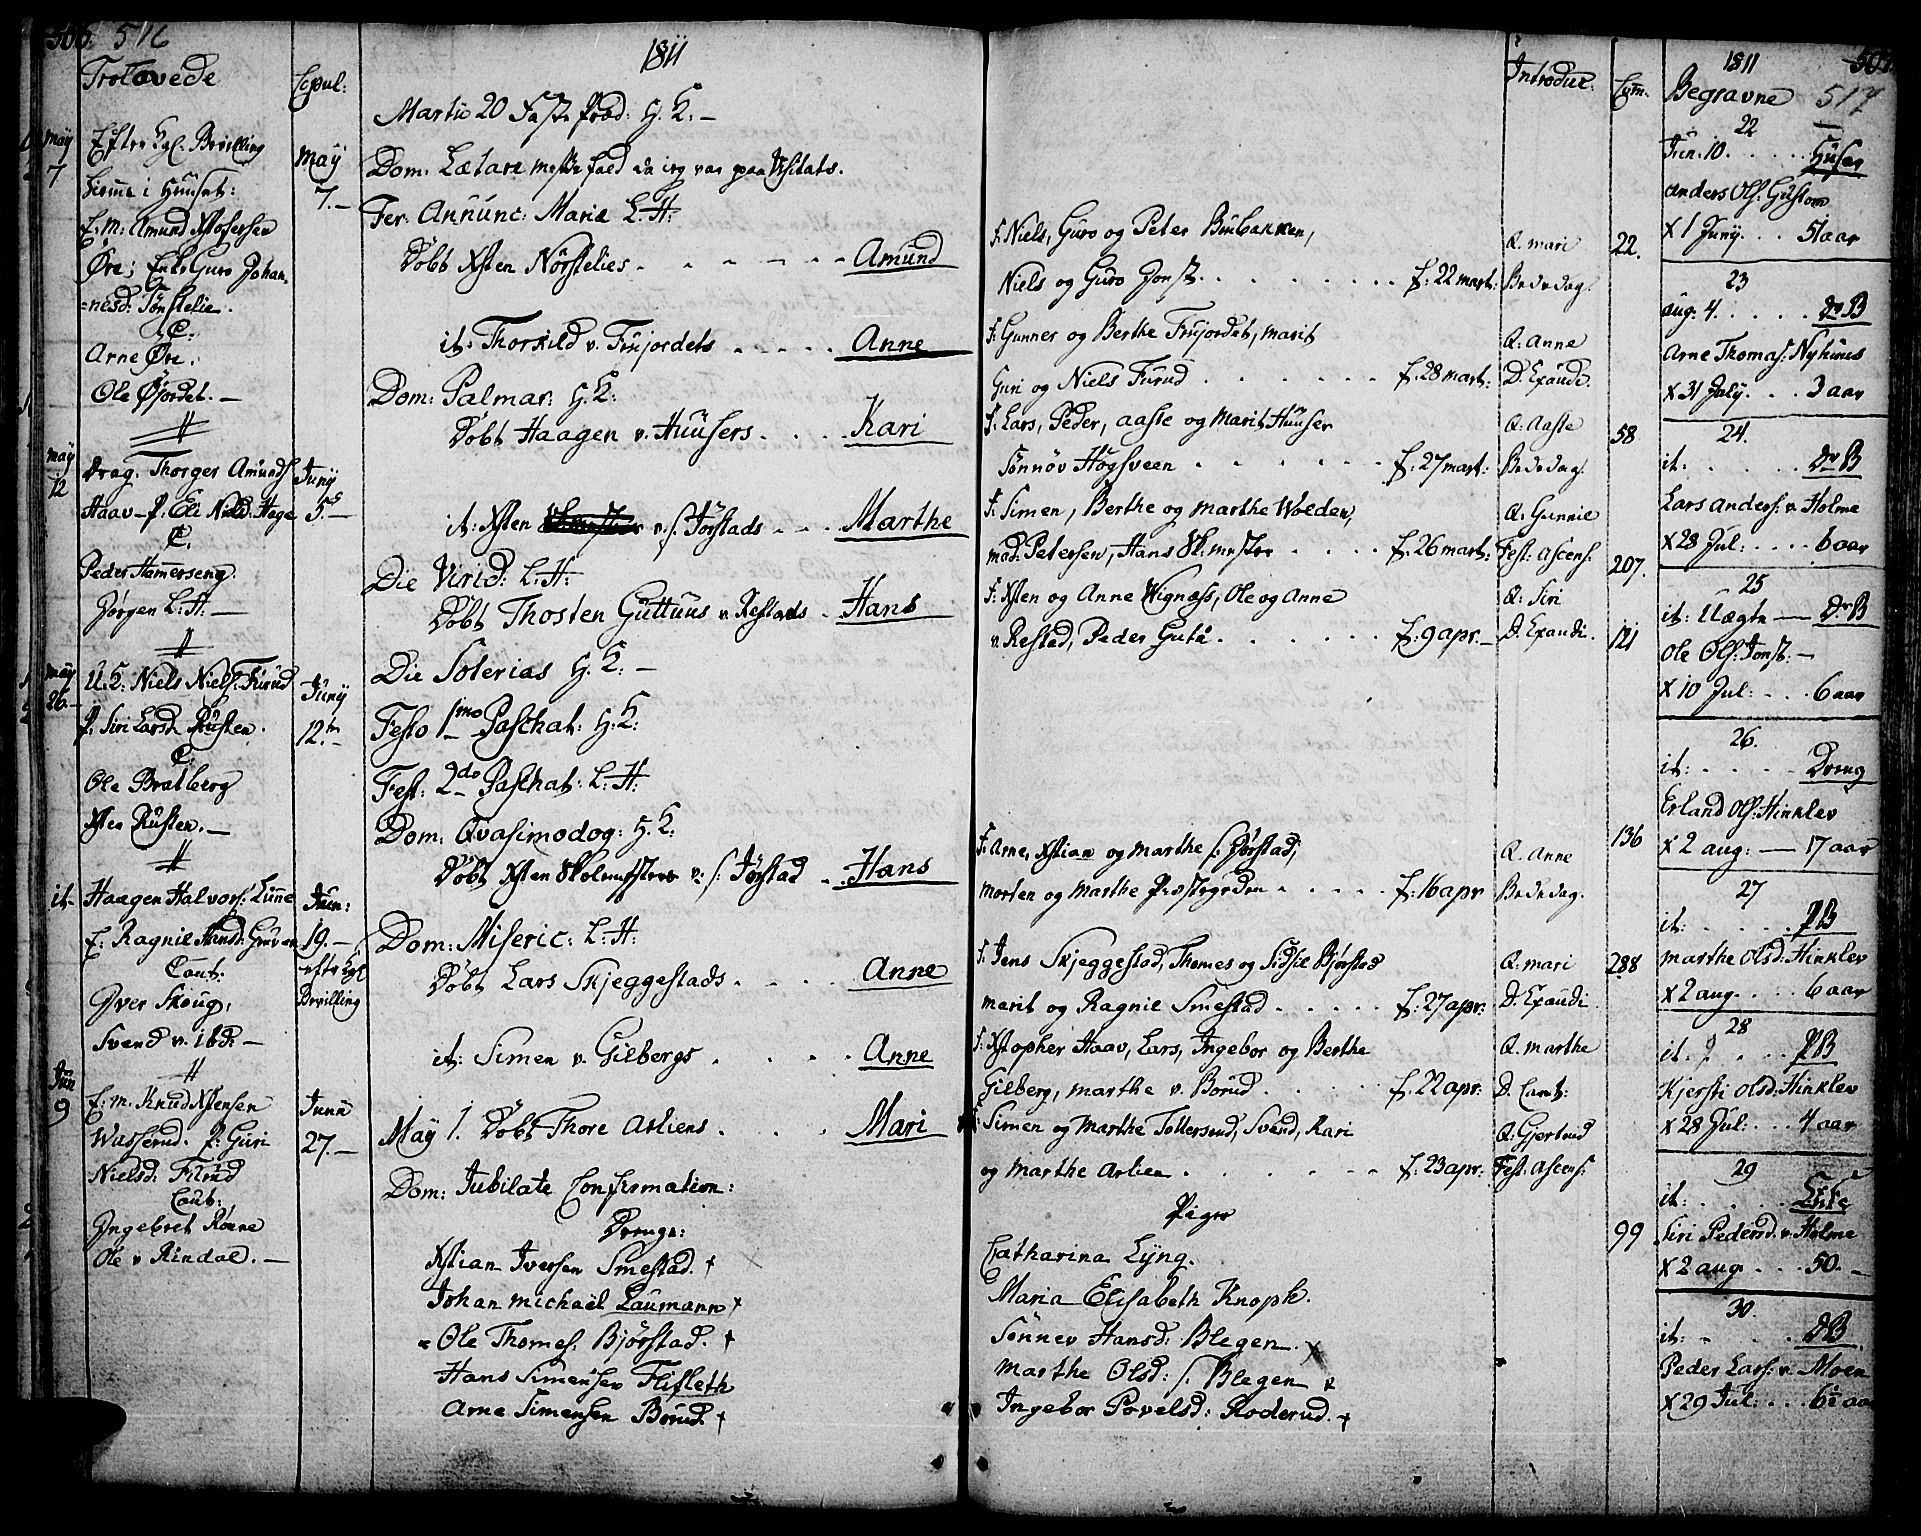 506 516
Trolovede
Copul:
1811
Introduc.
Com.
1811
507
Begravne 517
may 7
Efter Kgl. Bevilling
hieme i Huuset:
E. M: Amund Xstofersen
Øre; Enke Guro Johan-
=nesd: Tønstelie.
C:
Arne Øre.
Ole Øjordet. —
may 12
Drag. Thorger Amunds
Haav - P. Eli Nield. Hage
C.
Peder Hamerseng.
Jørgen L: H. —
may 26.
U. K: Niels Niels: Furud
P. Siri Larsd Rusten.
C:
Ole Bratberg
Xsten Rusten. —
it-
Haagen Halvors: Lunne
E: Ragnil Hansd: Gruven
Caut:
Iver Skoug,
Svend v. ibd: —
Jun 9
E: M. Knud Xstensen
Wasserud. P: Guri
Nielsd: Furud
Caut:
Ingebret Rønne
Ole v Rindal. —
May
7. —
Juny
5. —
Juny
12. —
Jun:
19. —
efter Kgl
Bevilling
Junii
27. —
Martii 20 Faste præd: H. K: —
Dom: Lætare messefald da ieg var paa Visitats.
Fer: Annunc: Mariæ L: H:
Døbt Xsten Nørstelies . . . . . Amund
it: Thorkild v. Frijordets . . . . . Anne
Dom: Palmar: H: K:
Døbt Haagen v. Huusers . . . Kari
it: Xsten v. s. Jørstads . . . Marthe
Die Virid: L: H:
Døbt Thosten Guttuus v Restads . Hans
Die Soterias H: K: —
Festo 1mo Paschat: H: K:
Fest: 2do Paschat: L: H:
Dom: Qvasimodog: H. K:
Døbt Xsten Skolemesters v: s. Jørstad . . Hans
Dom: Miseric: L: H:
Døbt Lars Skjeggestads . . . . Anne
it: Simen v. Gilbergs . . . . Anne
May 1. Døbt Thore Arliens . . . . Mari
Dom: Jubilate Confirmation:
Drenge:
Xstian Iversen Smestad. +
Johan Michaël Laumann +
Ole Thomes. Bjørstad. +
Hans Simensen Flifleth
Arne Simensen Borud +
F: Niels, Guro og Peter Brubakken,
Niels og Guro Jonst. . . . . . f: 22 mart:
F: Gunner og Berthe Frijordet, Marit
Guri og Niels Furud . . . . . f: 28 mart:
F. Lars, Peder, Aaste og Marit Huuser
Sønnøv Høgsveen . . . . . f. 27 mart:
F. Simen, Berthe og Marthe Wolden,
mad. Petersen, Hans Sk:mester . . . . f. 26 mart:
F: Xsten og Anne Wignæss, Ole og Anne
v. Restad, Peder Gutu . . . . . f. 9 apr. —
F: Arne, Xstian og Marthe s: Jørstad,
Morten og Marthe Præstegrden . . . . . f. 16 apr
F. Jens Skjeggestad, Thomes og Sidsle Bjørstad
Marit og Ragnil Smestad . . . . . f: 27 apr:
F: Xstopher Haav, Lars, Ingebor og Berthe
Gilberg, Marthe v. Borud . . . . f. 22 apr:
F: Simen og Marthe Tollersrud, Svend, Kari
og Marthe Arlien . . . . . f. 23 apr:
Piger
Catharina Lyng.
Maria Elisabeth Knoph.
Sønnev Hansd: Blegen. x
Marthe Olsd: s. Blegen x
Ingebor Povelsd: Roderud. +
Q. Mari
Bededag.
Q: Anne
D. Exaudi.
Q: Aaste
Bededag.
Q: Gunnil
Fest. Ascens.
Q: Siri
D. Exaudi.
Q. Anne
Bededag.
Q: Mari
D. Exaudi
Q. Marthe
D. Cant:
Q. Gjertrud
Fest: Ascens:
22.
58
207.
121
136
288
99
22
Jun: 10. . . . . Huser
Anders Ols: Gustom
X 1 Juny . . . 51 aar
23
Aug: 4. . . . . Dr B
Arne Thomas: Nyhuus
X 31 July. . . 3 aar
24.
it: . . . . . Dr B
Lars Anders: v. Holme
X 28 Jul: . . . 6 aar
25
it: Uægte — Dr B
Ole Ols: Jonst: —
X 10 Jul: . . . 6 aar
26.
it: . . . . — Dreng
Erland Ols: Hinklev
X 2 aug: — 17 aar
27
it: . . . . . PB
Marthe Olsd: Hinklev
X 2 aug. . . . 6 aar
28
it: . . . PB
Kjersti Olsd: Hinklev
X 28 Jul: . . . 4 aar
29
it: . . . . Enke
Siri Pedersd. v. Holme
X 2 aug . . . 50. —
30.
it: . . . . DB
Peder Lars: v. Moen
X 29 Jul: . . . 6½ aar